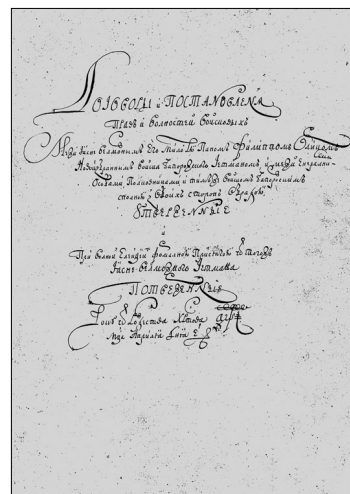 Договоры и Постановлενя
Правъ и волностей войсковыхъ
Межи Ясне велможнимъ Его Милости Паномъ Филиппомъ Орликомъ
Новоизбраннымъ войска Запорожского Гетманомъ, и межи Енералними
Особами, Полковниками и тимжε войскомъ Запорожскимъ
с полною з обоихъ сторонъ обрадою,
Утверженные
и
При волной Елекцѣи формалною Присягою ѿ тогожъ
Ясне велможного Гетмана
Потверженные
Року ѿ Рождества Хрстова ҂аѱі
мсца Априля дня е